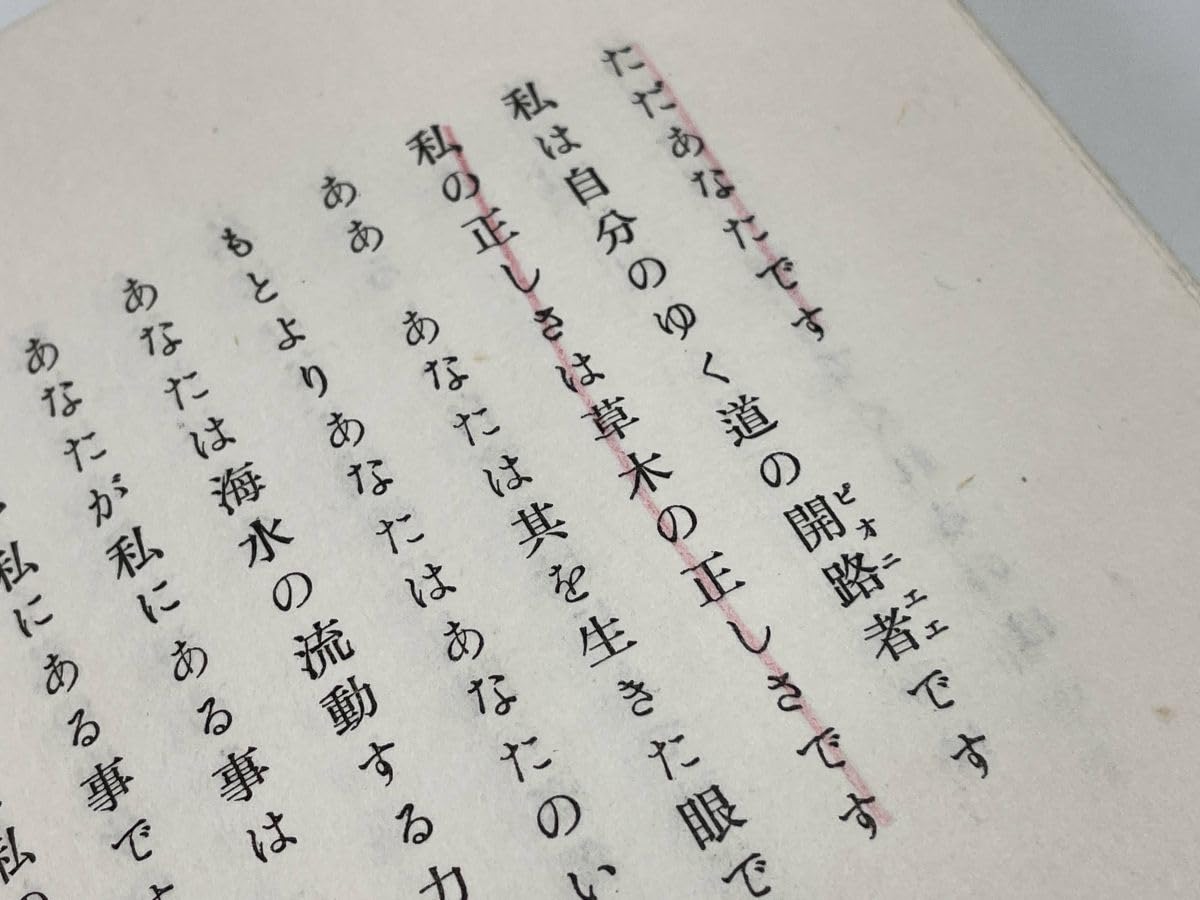 ただあなたです
私は自分のゆく道の開路者です
ピオニエエ
私の正しさは草木の正しさです
ああ あなたは其を生きた眼で
もとよりあなたはあなたのい
あなたは海水の流動する力
あなたが私にある事は
私にある事です
私の